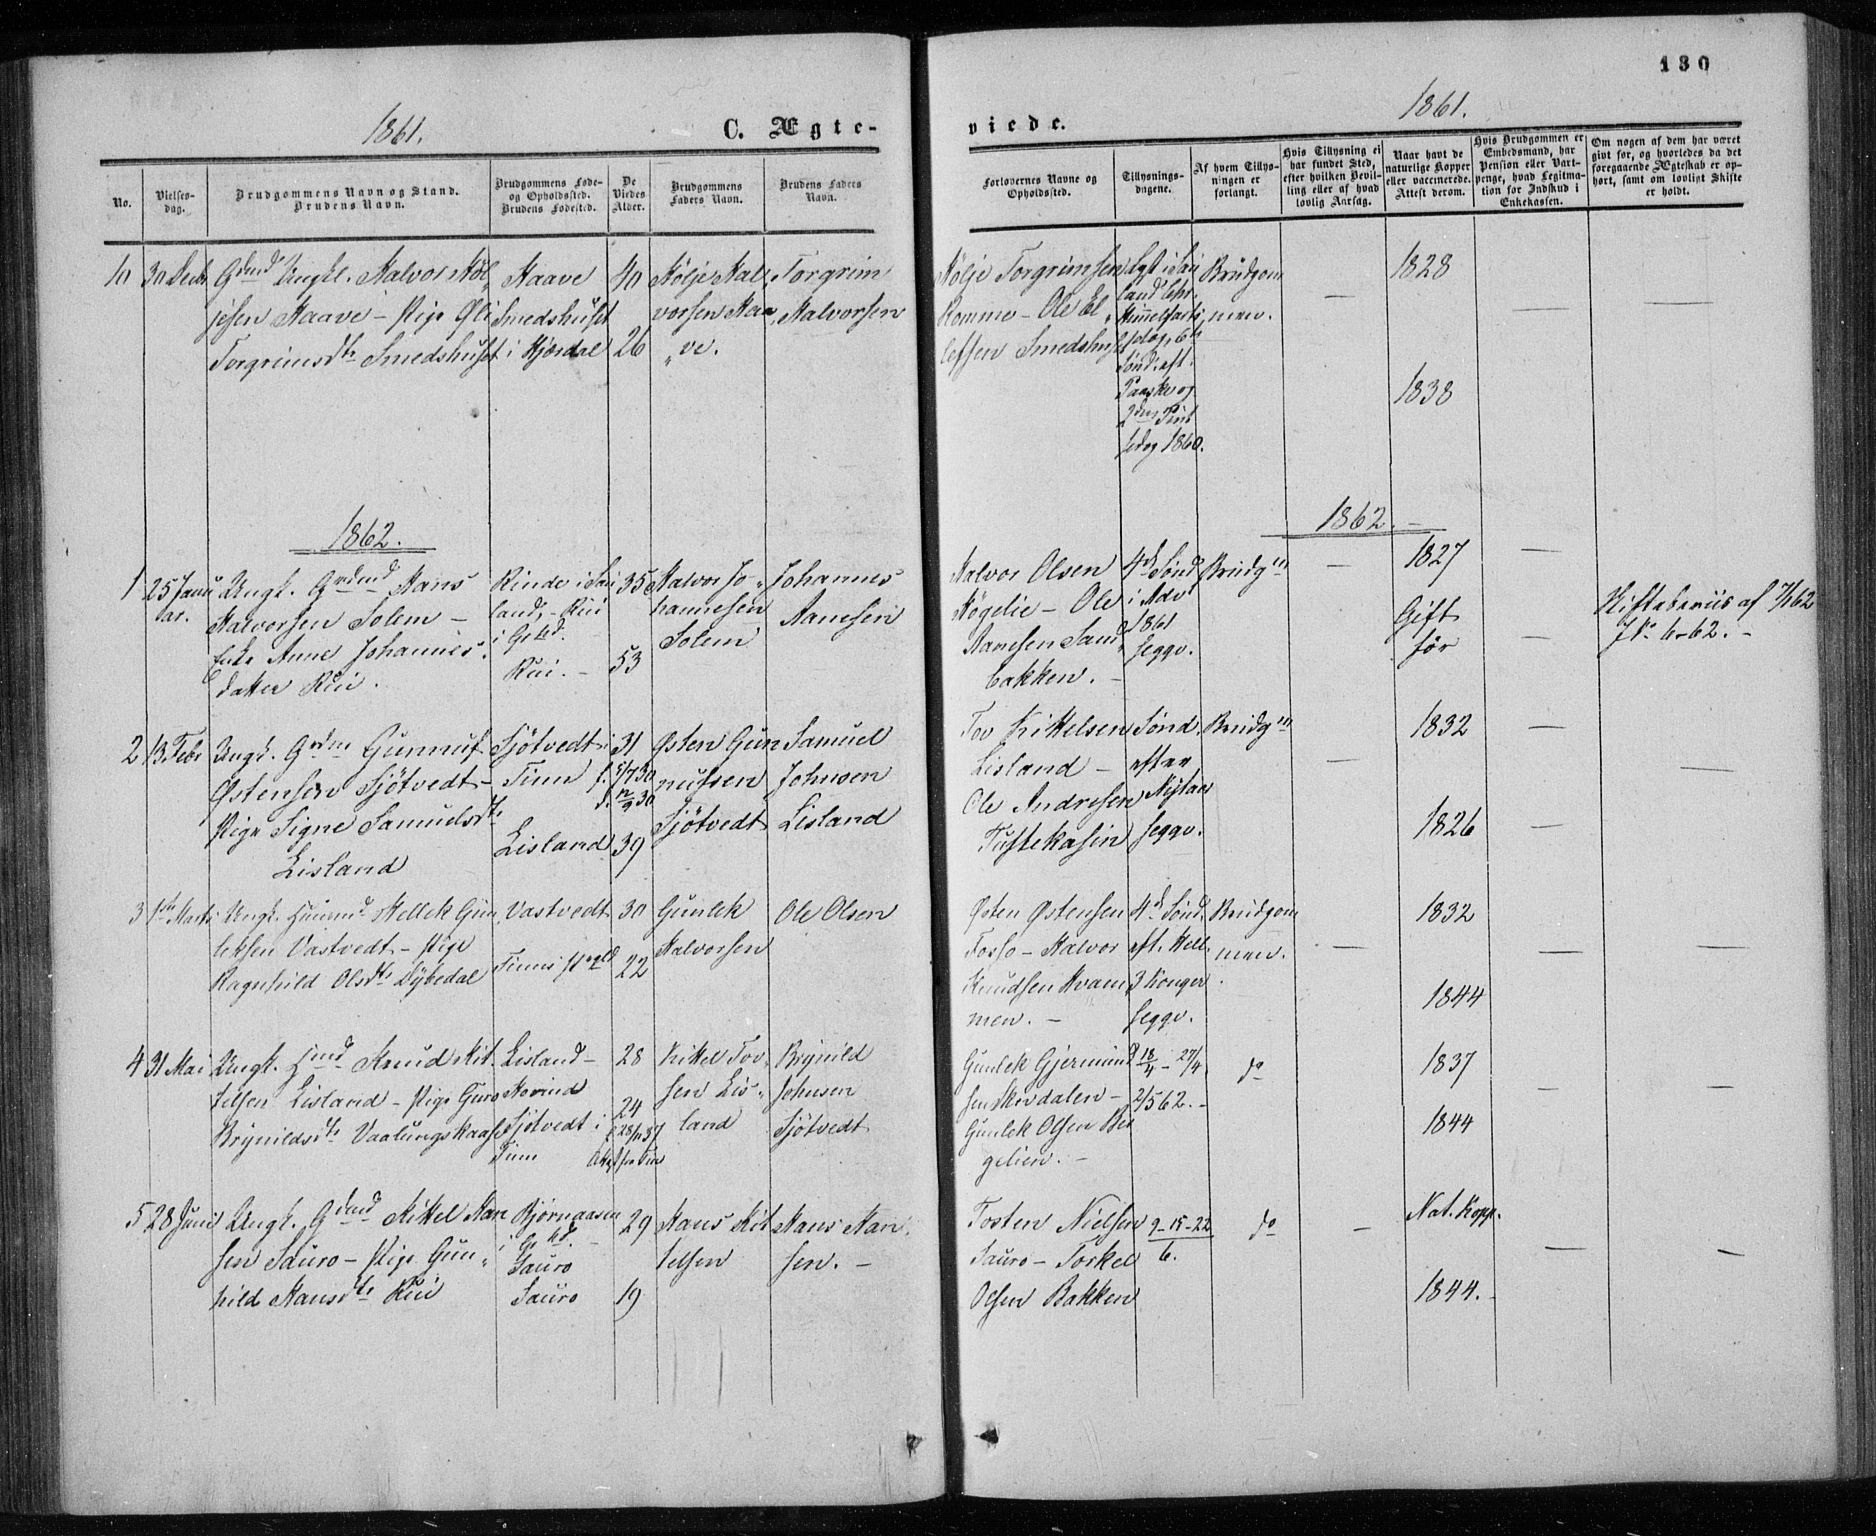 130
1861.
1861.
C. Ægte-
viede.
No.
Vielses-
dag.
Brudgommens Navn og Stand.
Brudens Navn.
Brudgommens Føde-
og Opholdssted.
Brudens Fødested.
De
Viedes
Alder.
Brudgommens
Faders Navn.
Brudens Faders
Navn.
Forlovernes Navne og
Opholdssted.
Tillysnings-
dagene.
Af hvem Tillys-
ningen er
forlangt.
Hvis Tillysning ei
har fundet Sted,
efter hvilken Bevil-
ling eller af hvad
lovlig Aarsag.
Naar havt de
naturlige Kopper
eller vaccinerede.
Attest derom.
Hvis Brudgommen er
Embedsmand, har
Pension eller Vart-
penge, hvad Legitima-
tion for Indskud i
Enkekassen.
Om nogen af dem har været
givt før, og hvorledes da det
foregaaende Ægteskab er op-
hørt, samt om lovligt Skifte
er holdt.
10
30 Decb
Ungkl. Halvor Høl
jesen Haave - Pige
Torgrimsdtr Smedshuset
Haave
Smedshuset
i Hjerdal
40
26
Hølje Hal
vorsen Haa
ve.
Torgrim
Halvorsen
Hølje Torgrimsen
Romme - Ole El
lefsen Smedshus
land Chr.
Himmelfarts
Sønd. eft.
Paaske og
2den Pint
sedag 1860.
Brudgom
men.
1828
1838
1862.
1862.
1
25 Janu
ar.
Ungk. Hans
Halvorsen Solem -
Enke Anne Johannes
datter Rui.
Rinde i Sau
land, - Rui
i Grsd.
Rui. -
35
53
Halvor Jo
hannesen
Solem
Johannes
Aanesen
Halvor Olsen
Høgelie - Ole
Aanesen Sand
bakken. -
4de Sønd
i Adv
1861
Seggv.
Brudgm
1827
Gift
før
Skiftebeviis af 7/1 62
Jr. 6-62. -
2
13 Febr
Ungk. Gunnuf
Østensen Sjötvedt -
Pige Signe Samuelsdtr
Lisland
Sjötvedt i
Tinn
Lisland
31
39
Østen Gun
nufsen
Sjötvedt
Samuel
Johnsen
Lisland
Tov Kittelsen
Lisland -
Ole Andresen
Tuftekasin
Sønd
efter
Nytaar
Seggv.
Brudgm
1832
1826
3
1ste Marts
Ungk. Huusmd Hellek Gun
leksen Vastvedt - Pige
Ragnhild Olsdtr Dybedal
Vastvedt
Tinns
30
22
Gunlek
Halvorsen
Ole Olsen
Østen Østensen
Fosso - Halvor
Knudsen Hvam
men. -
4de Sønd.
eft. Hell.
3 Konger
Seggv.
Brudgom
men.
1832
1844
4
31 Mai
Ungk. Knud Kit
telsen Lisland - Pige Guro
Brynildsdtr Vaalungskaas
Lisland -
Hovind
Sjötvedt i
Tinn
28
24
Kittel Tov
sen Lis
land
Brynild
Johnsen
Sjötvedt
Gunlek Gjermund
sen Skrdalen -
Gunlek Olsen Ber
gelien. -
18/4 - 27/4
2/5 62. -
do
1837
1844
5
28 Juni
Ungk. Kittel Han
sen Sauro - Pige Gun
hild Hansdtr Rui
Bjørnaasen
i Grsd. -
Sauro
Sauro
29
19
Hans Kit
telsen
Hans Han
sen. -
Tosten Nielsen
Sauro - Torkel
Olsen Bakken
9-15-22
6.
do
Nat. Kopp.
1844. -